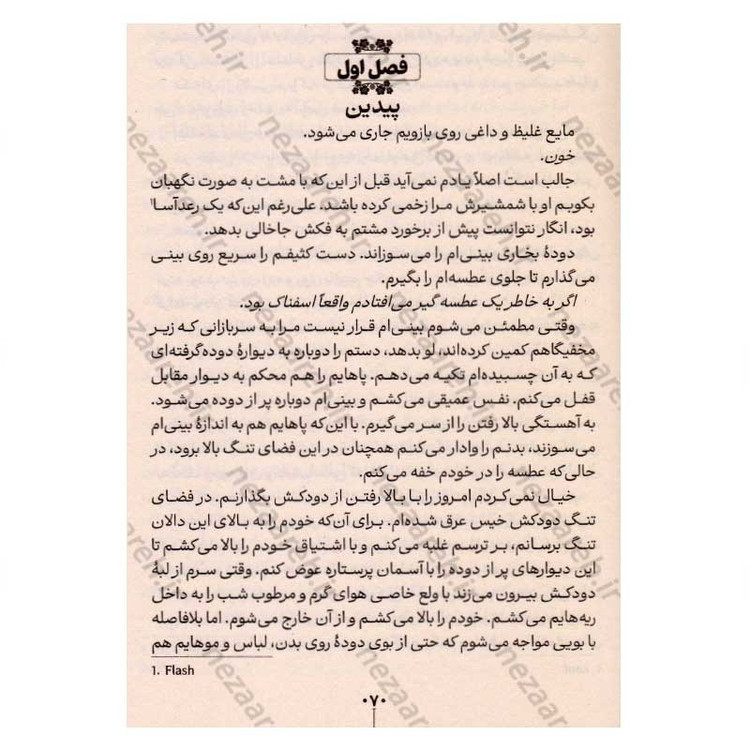 فصل اول
پیدین
مایع غلیظ و داغی روی بازویم جاری می‌شود.
خون.
جالب است اصلاً یادم نمی‌آید قبل از این‌که با مشت به صورت نگهبان
بکوبم او با شمشیرش مرا زخمی کرده باشد. علی‌رغم این‌که یک رعدآسا¹
بود، انگار نتوانست پیش از برخورد مشتم به فکش جاخالی بدهد.
دودهٔ بخاری بینی‌ام را می‌سوزاند. دست کثیفم را سریع روی بینی
می‌گذارم تا جلوی عطسه‌ام را بگیرم.
اگر به خاطر یک عطسه گیر می‌افتادم واقعاً اسفناک بود.
وقتی مطمئن می‌شوم بینی‌ام قرار نیست مرا به سربازانی که زیر
مخفیگاهم کمین کرده‌اند، لو بدهد، دستم را دوباره به دیوارهٔ دوده‌گرفته‌ای
که به آن چسبیده‌ام تکیه می‌دهم. پاهایم را هم محکم به دیوار مقابل
قفل می‌کنم. نفس عمیقی می‌کشم و بینی‌ام دوباره پر از دوده می‌شود.
به آهستگی بالا رفتن را از سر می‌گیرم. با این‌که پاهایم هم به اندازهٔ بینی‌ام
می‌سوزند، بدنم را وادار می‌کنم همچنان در این فضای تنگ بالا برود، در
حالی‌که عطسه را در خودم خفه می‌کنم.
خیال نمی‌کردم امروز را با بالا رفتن از دودکش بگذارنم. در فضای
تنگ دودکش خیس عرق شده‌ام. برای آن‌که خودم را به بالای این دالان
تنگ برسانم، بر ترسم غلبه می‌کنم و با اشتیاق خودم را بالا می‌کشم تا
این دیوارهای پر از دوده را با آسمان پرستاره عوض کنم. وقتی سرم از لبهٔ
دودکش بیرون می‌زند با ولع خاصی هوای گرم و مرطوب شب را به داخل
ریه‌هایم می‌کشم. خودم را بالا می‌کشم و از آن خارج می‌شوم. اما بلافاصله
با بویی مواجه می‌شوم که حتی از بوی دودهٔ روی بدن، لباس و موهایم هم
1. Flash
۰۷۰
nezaareh.ir